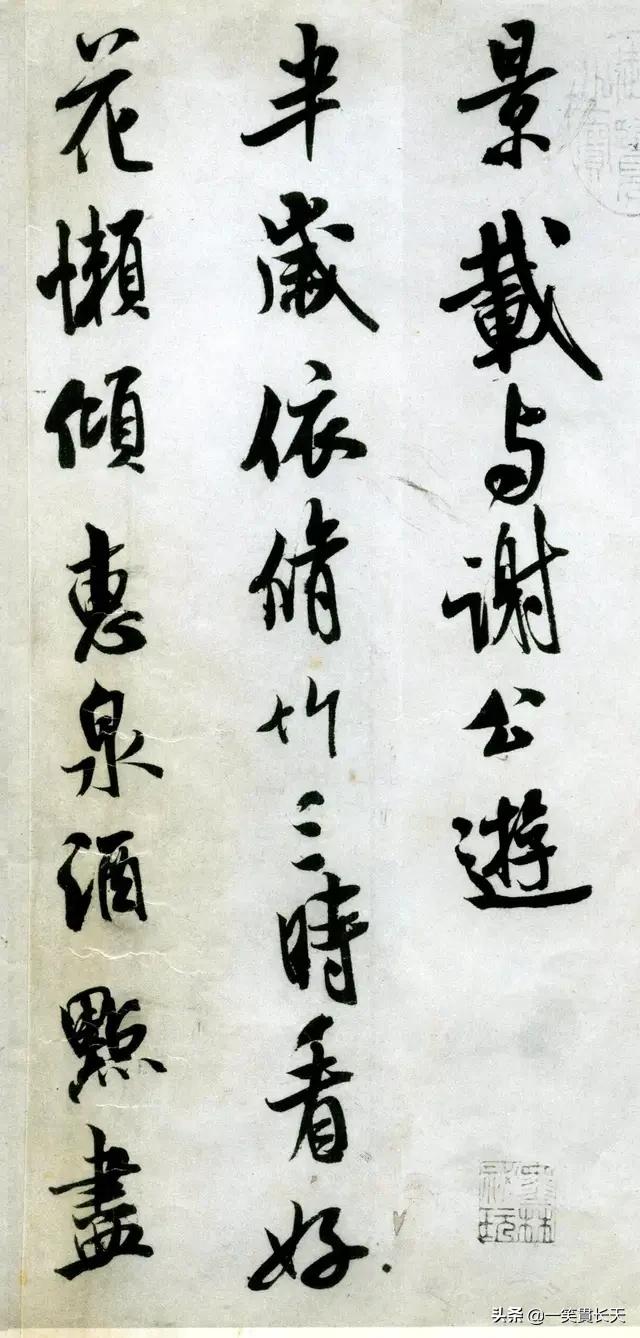 景載与謝公遊
半歲依脩竹三時看好
花懶傾惠泉酒點盡
头条 @一笑貫长天